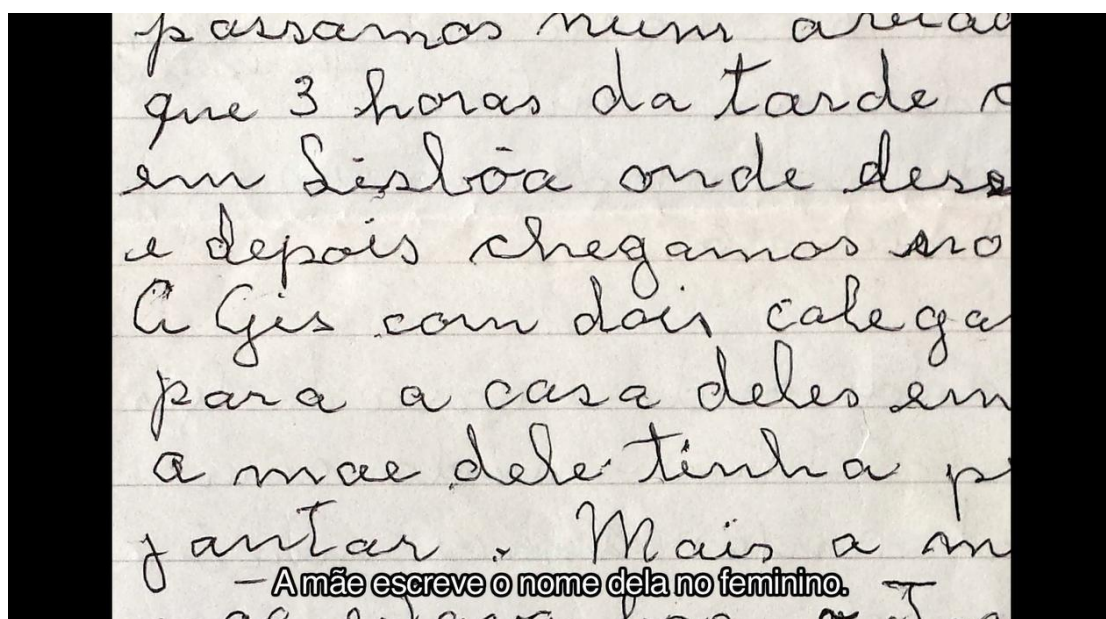 passamos num
que 3 horas da tarde
em Lisbôa onde
e depois chegamos no
A Gis com dois
para a casa deles em
a mae dele tinha
jantar. Mais a
— A mãe escreve o nome dela no feminino.